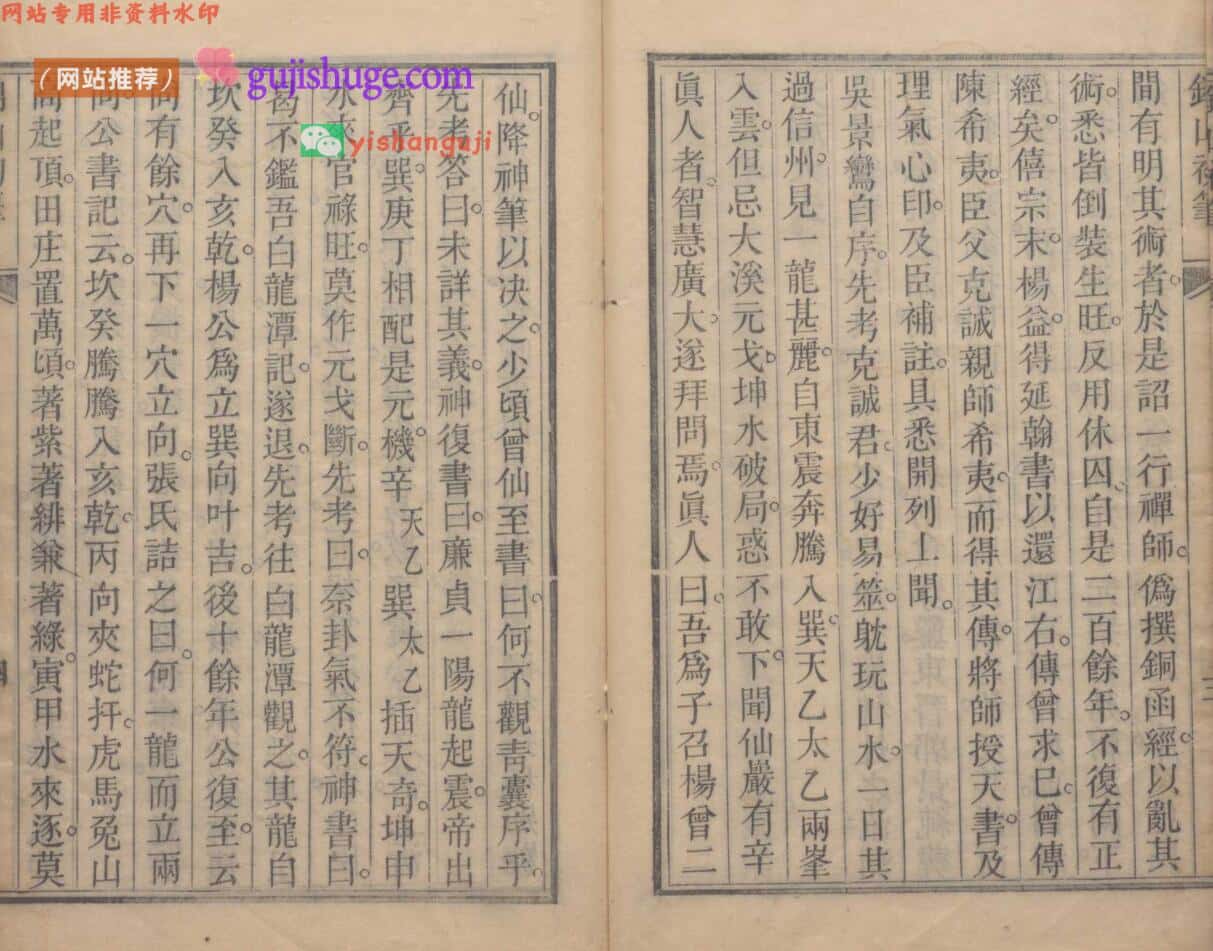 网站专用非资料水印
（网站推荐）
gujishuge.com
yishanguji
間有明其術者。於是詔一行禪師。僞撰銅函經。以亂其
術。悉皆倒裝生旺。反用休囚。自是二百餘年。不復有正
經矣。僖宗末。楊益得延翰書以還江右。傳曾求巳。曾傳
陳希夷。臣父克誠親師希夷。而得其傳。將師授天書。及
理氣心印。及臣補註。具悉開列上聞。
吳景鸞自序。先考克誠君。少好易筮。躭玩山水。一日其
過信州。見一龍甚麗。自東震奔騰入巽。天乙太乙兩峯
入雲。但忌大溪元戈。坤水破局。惑不敢下。聞仙嚴有辛
眞人者。智慧廣大。遂拜問焉。眞人曰。吾爲子召楊曾二
仙。降神筆以決之。少頃曾仙至書曰。何不觀靑囊序乎。
先考答曰。未詳其義。神復書曰。廉貞一陽龍起震。帝出
齊乎巽。庚丁相配是元機。辛天乙巽太乙插天奇。坤申
水來官祿旺。莫作元戈斷。先考曰。奈卦氣不符。神書曰。
曷不鑑吾白龍潭記。遂退。先考往白龍潭觀之。其龍自
坎癸入亥乾。楊公爲立巽向叶吉。後十餘年。公復至。云
尚有餘穴。再下一穴立向。張氏詰之曰。何一龍而立兩
向。公書記云。坎癸騰騰入亥乾。丙向夾蛇扦。虎馬兔山
高起頂。田庄置萬頃。著紫著緋兼著綠。寅甲水來逐。莫